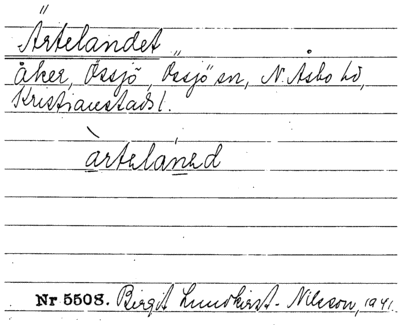 Ärtelandet
åker, Össjö, Össjö sn, N. Åsbo hd,
Kristianstads l.
àrtelánəd
Nr 5508. Birgit Lundkvist-Nilsson, 1941.